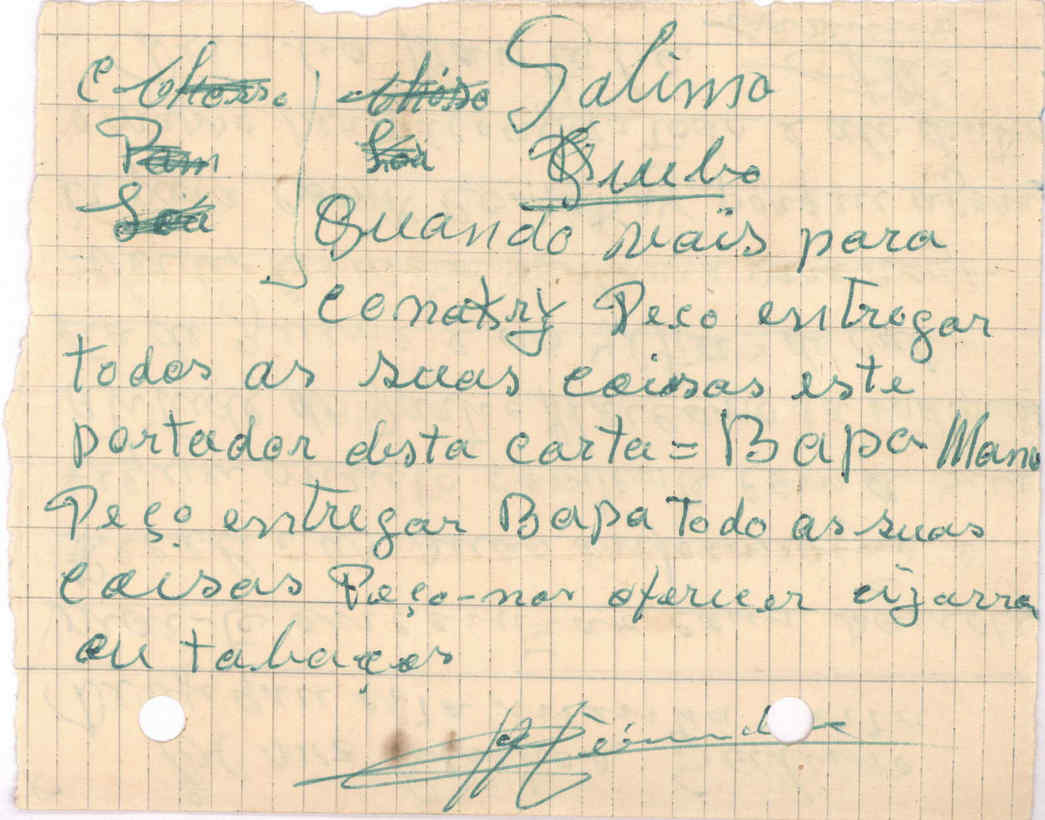 Salimo
Quebo
Quando vais para
Conakry Peço entregar
todas as suas coisas este
portador desta carta = Bapa Mane
Peço entregar Bapa todo as suas
coisas Peço-nos oferecer cigarra
ou tabaços